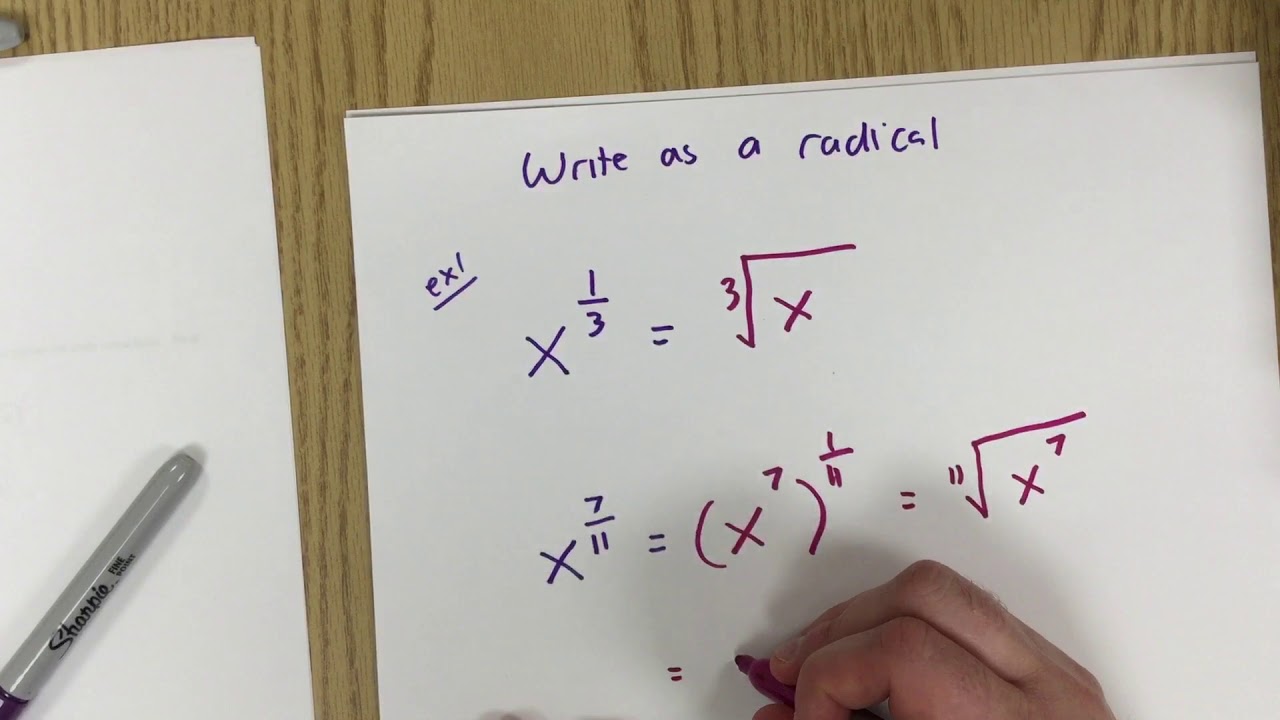 Write as a radical
ex1
x^{1/3} = ∛x
x^{7/11} = (x^7)^{1/11} = ¹¹√x^7
=
Sharpie
FINE POINT